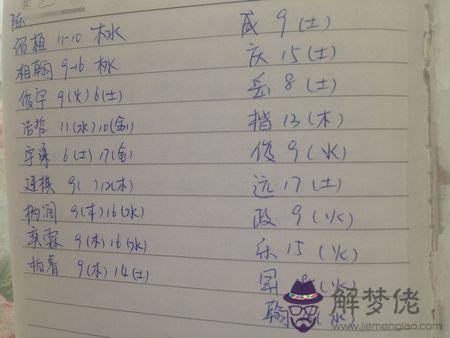 陈
佰植 11-10 木水
相翰 9-16 木水
俊宇 9(火)6(土)
浩哲 11(水)10(金)
宇谦 6(土)17(金)
建楷 9( )12(木)
柄润 9(木)16(水)
奕霖 9(木)16(水)
柏睿 9(木)14(土)
成 9(土)
庆 15(土)
岳 8(土)
楷 13(木)
俊 9(火)
远 17(土)
政 9(火)
乐 15(火)
翰
解梦佬
www.jiemenglao.com